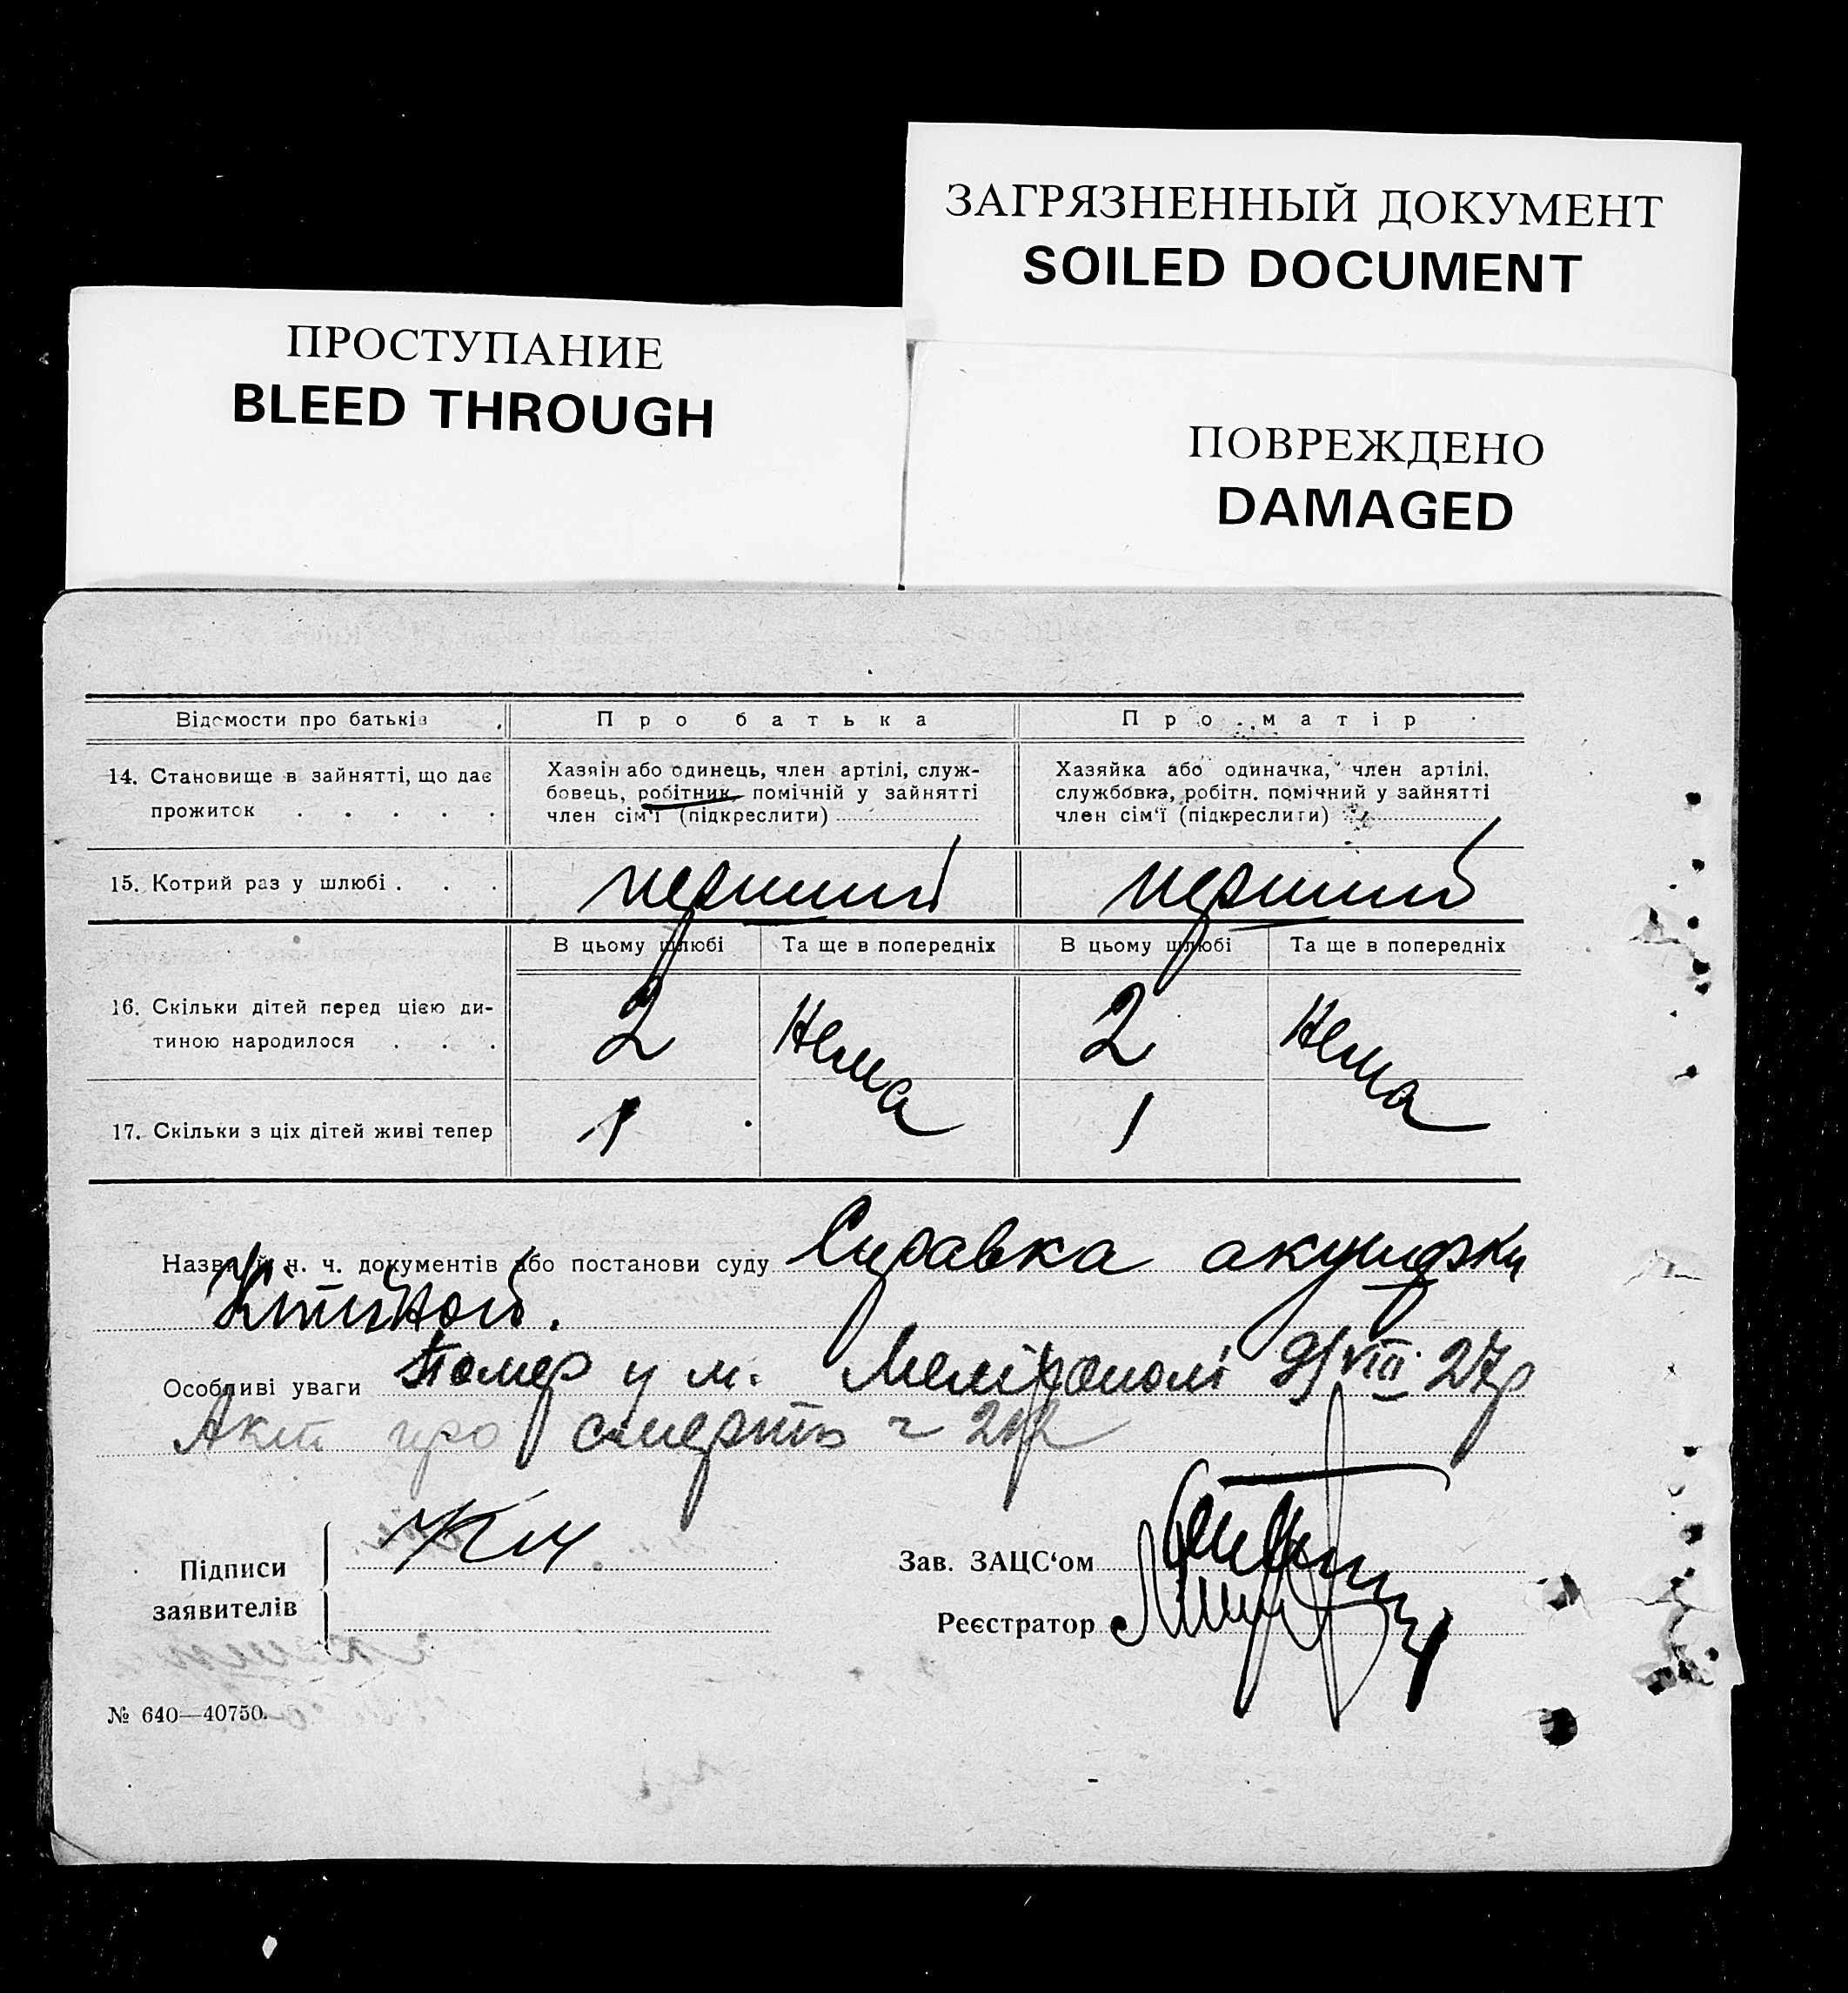 ЗАГРЯЗНЕННЫЙ ДОКУМЕНТ
SOILED DOCUMENT
ПРОСТУПАНИЕ
BLEED THROUGH
ПОВРЕЖДЕНО
DAMAGED
Відомости про батьків
Про батька
Про матір
14. Становище в зайнятті, що дає
прожиток . . . . .
Хазяін або одинець, член артілі, служ-
бовець, робітник, помічній у зайнятті
член сім'ї (підкреслити)
Хазяйка або одиначка, член артілі,
службовка, робітн. помічний у зайнятті
член сім'ї (підкреслити)
15. Котрий раз у шлюбі . . .
перший
перший
В цьому шлюбі
Та ще в попередніх
В цьому шлюбі
Та ще в попередніх
16. Скільки дітей перед цією ди-
тиною народилося . . .
2
Нема
2
Нема
17. Скільки з ціх дітей живі тепер
1
1
Назва й ч. ч. документів або постанови суду Справка акушерки
Особливі уваги Помер у м. Меліторполі VIII 27р
Акт про смерть ч 212
Підписи
заявителів
Зав. ЗАЦС'ом
Реєстратор
№ 640—40750.